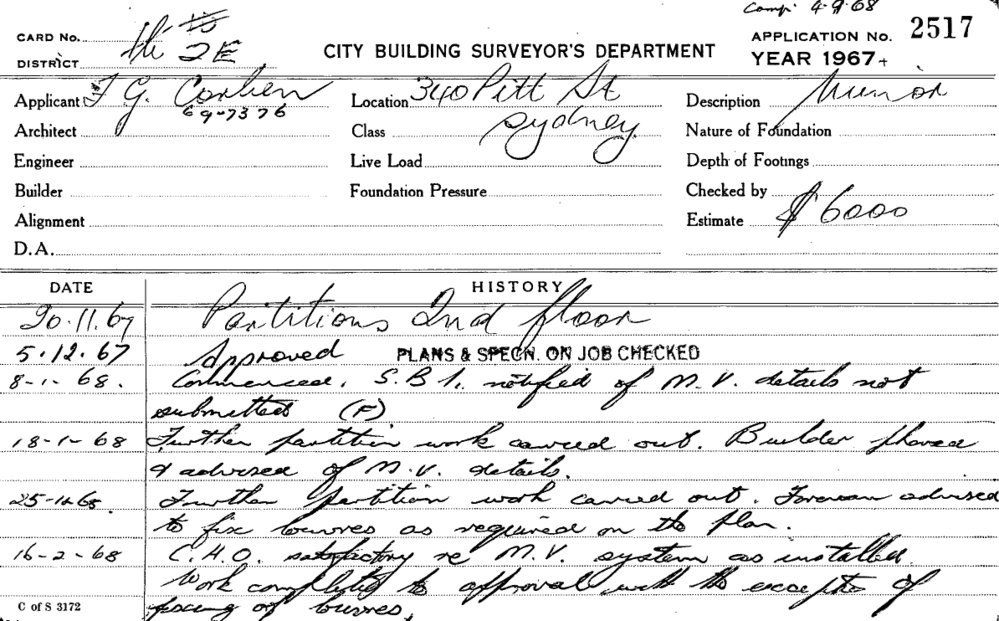 Comp. 4-9-68
CARD No.
DISTRICT 2E
CITY BUILDING SURVEYOR'S DEPARTMENT
APPLICATION No. 2517
YEAR 1967+
Applicant F G. Corben
69-7376
Location 340 Pitt St
Sydney
Description Minor
Architect
Class
Nature of Foundation
Engineer
Live Load
Depth of Footings
Builder
Foundation Pressure
Checked by
Alignment
Estimate $6000
D.A.
DATE HISTORY
20.11.67 Partitions 2nd floor
5.12.67 Approved PLANS & SPECN. ON JOB CHECKED
8-1-68. Commenced. S.B.I. notified of M.V. details not
submitted (F)
18-1-68 Further partition work carried out. Builder phoned
& advised of M.V. details.
25-1-68 Further partition work carried out. Foreman advised
to fix louvres as required on the plan.
16-2-68 C.H.O. satisfactory re M.V. system as installed.
Work completed to approval with the exception of
fixing of louvres.
C of S 3172